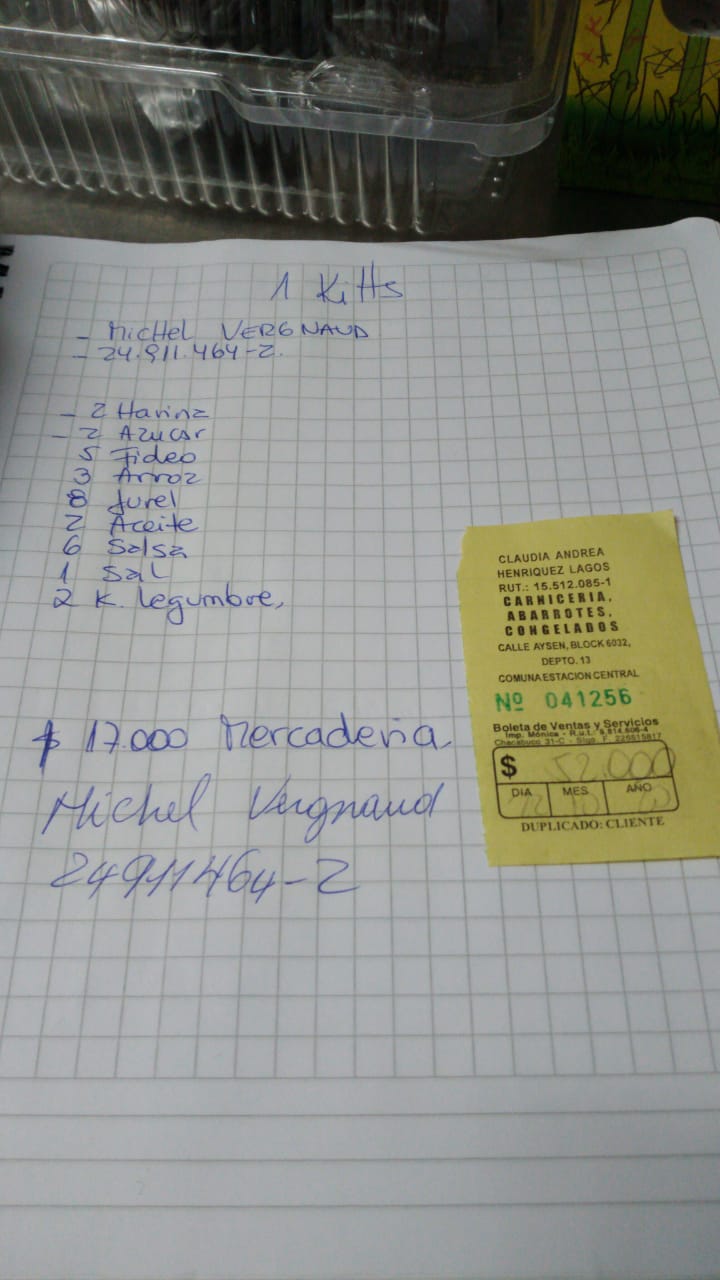 1 Kitts
- MicHel VERGNAUD
- 24.911.464-2.
- 2 Harina
- 2 Azucar
5 Fideo
3 Arroz
8 Jurel
2 Aceite
6 Salsa
1 Sal
2 K. legumbre,
$ 17.000 Mercaderia.
Michel Vergnaud
24911464-2
CLAUDIA ANDREA
HENRIQUEZ LAGOS
RUT.: 15.512.085-1
CARNICERIA,
ABARROTES,
CONGELADOS
CALLE AYSEN, BLOCK 6032,
DEPTO. 13
COMUNA ESTACION CENTRAL
Nº 041256
Boleta de Ventas y Servicios
Imp. Mónica - R.u.t.: 9.814.606-4
Chacabuco 31-C - Stgo. F. 226815817
$ 52.000
DIA MES AÑO
DUPLICADO: CLIENTE